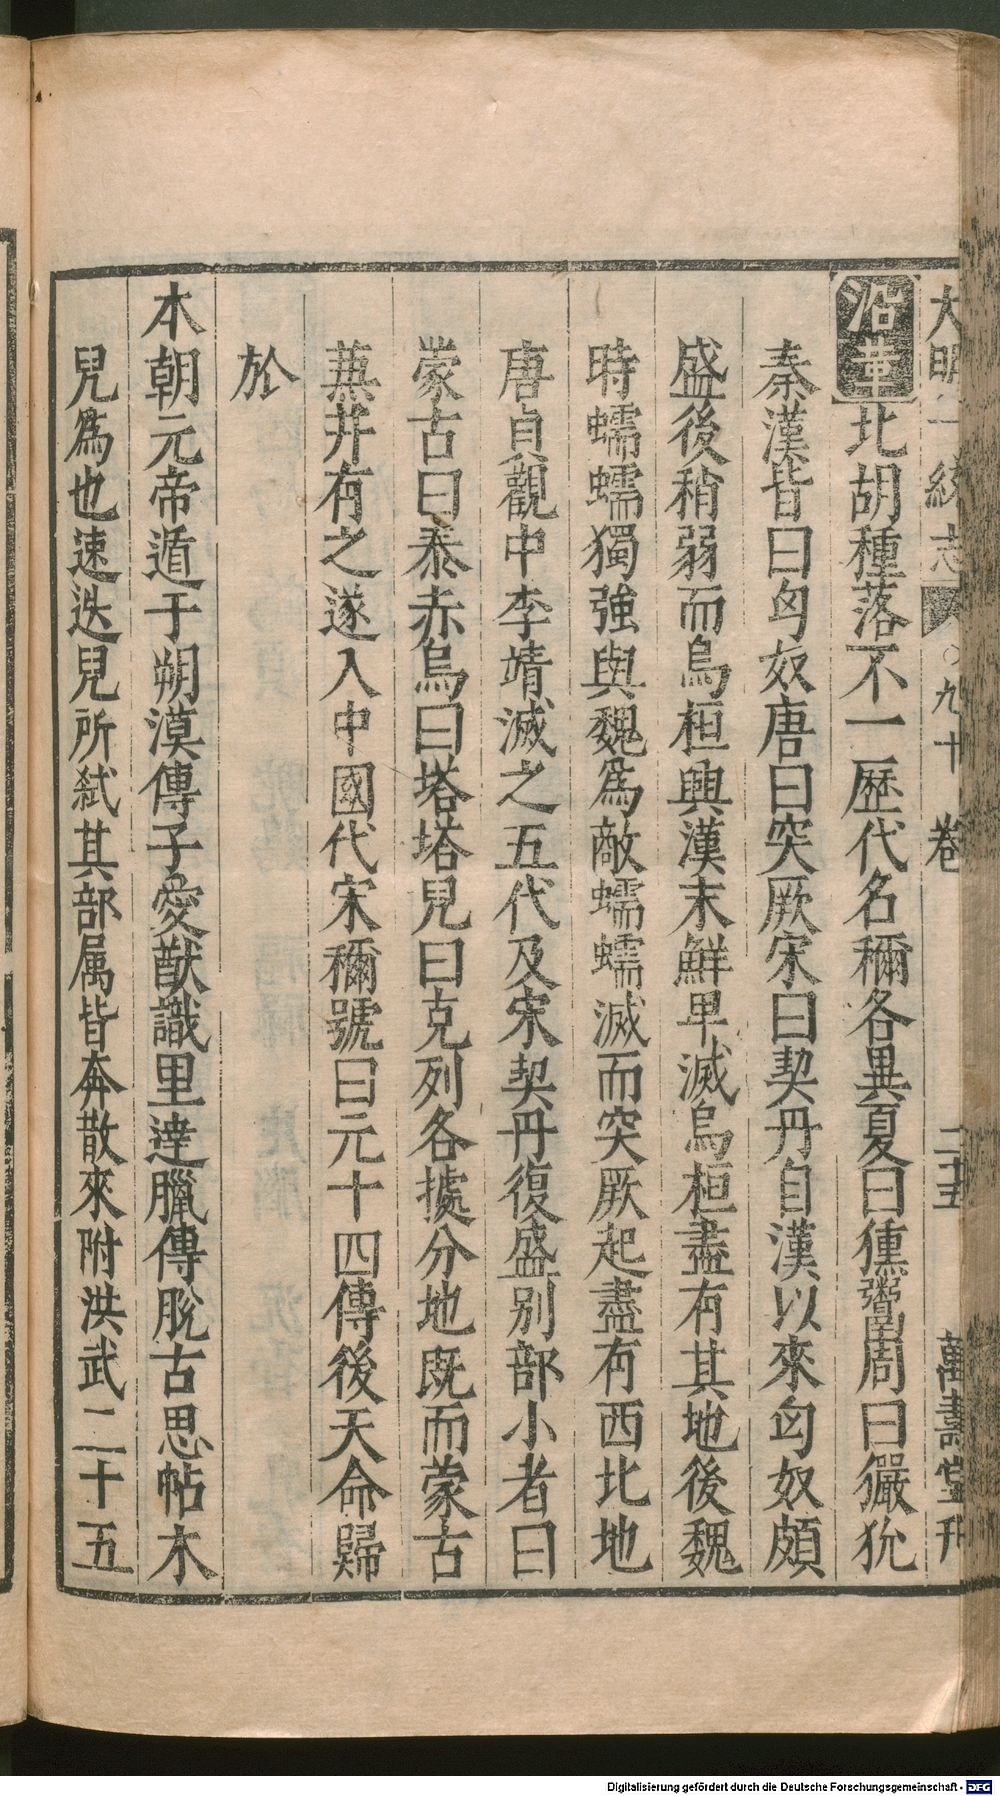 大明一統志 九十卷 二十五 萬壽堂刊
沿革 北胡種落不一歷代名稱各異夏曰獯鬻周曰玁狁
秦漢皆曰匈奴唐曰突厥宋曰契丹自漢以來匈奴頗
盛後稍弱而烏桓興漢末鮮卑滅烏桓盡有其地後魏
時蠕蠕獨強與魏為敵蠕蠕滅而突厥起盡有西北地
唐貞觀中李靖滅之五代及宋契丹復盛別部小者曰
蒙古曰泰赤烏曰塔塔兒曰克列各據分地既而蒙古
蒹并有之遂入中國代宋稱號曰元十四傳後天命歸
於
本朝元帝遁于朔漠傳子愛猷識里達臘傳脫古思帖木
兒為也速迭兒所弒其部属皆奔散來附洪武二十五
Digitalisierung gefördert durch die Deutsche Forschungsgemeinschaft - DFG